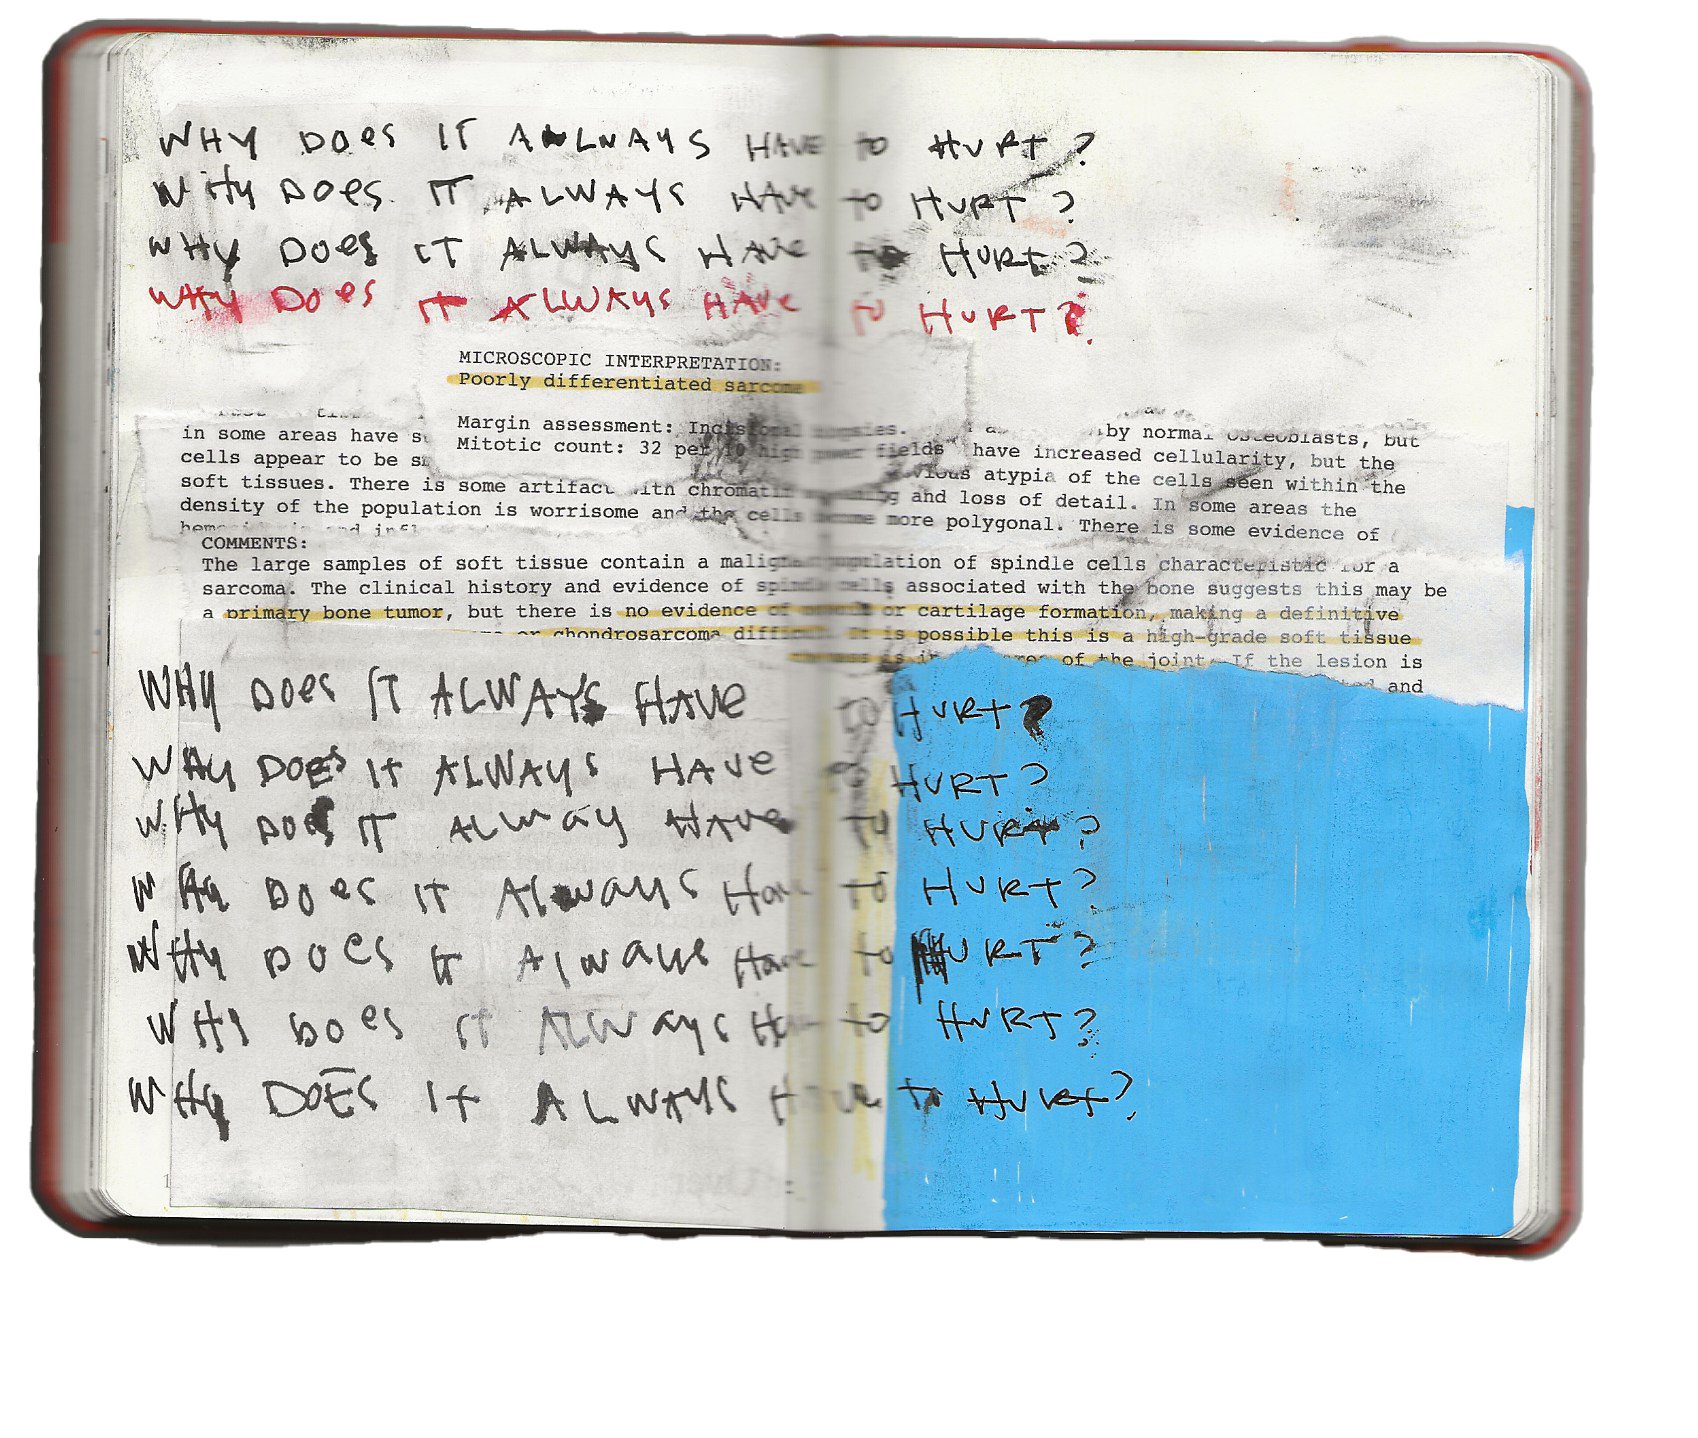 WHY DOes IT ALWAYS HAVE to HURT?
WHY DOes IT ALWAYS HAVe to HURT?
WHY DOes IT ALWAYS HAVe to HURT?
WHY DOes IT ALWAYS HAVe to HURT?
MICROSCOPIC INTERPRETATION:
Poorly differentiated sarcoma
Margin assessment: Incisional biopsies.
Mitotic count: 32 per 10 high power fields
by normal osteoblasts, but
in some areas have have increased cellularity, but the
cells appear to be atypia of the cells seen within the
soft tissues. There is some artifact with chromatin and loss of detail. In some areas the
density of the population is worrisome and the cells become more polygonal. There is some evidence of
and
COMMENTS:
The large samples of soft tissue contain a malignant population of spindle cells characteristic for a
sarcoma. The clinical history and evidence of spindle cells associated with the bone suggests this may be
a primary bone tumor, but there is no evidence of or cartilage formation, making a definitive
or chondrosarcoma difficult. It is possible this is a high-grade soft tissue
of the joint. If the lesion is
and
WHY DOes IT ALWAYS HAVe to HURT?
WHY DOES It ALWAYS HAVe to HURT?
WHY DOES IT ALWAY HAVe to HURT?
WHy DOes IT Always Have to HURT?
WHy DOes It Always Have to HURT?
WHY DOes IT ALWAys HAve to HURT?
WHy DOES It ALWAYS HAVe to HURt?